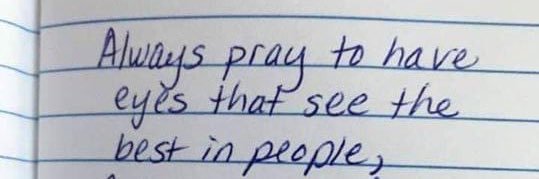 Always pray to have
eyes that see the
best in people,